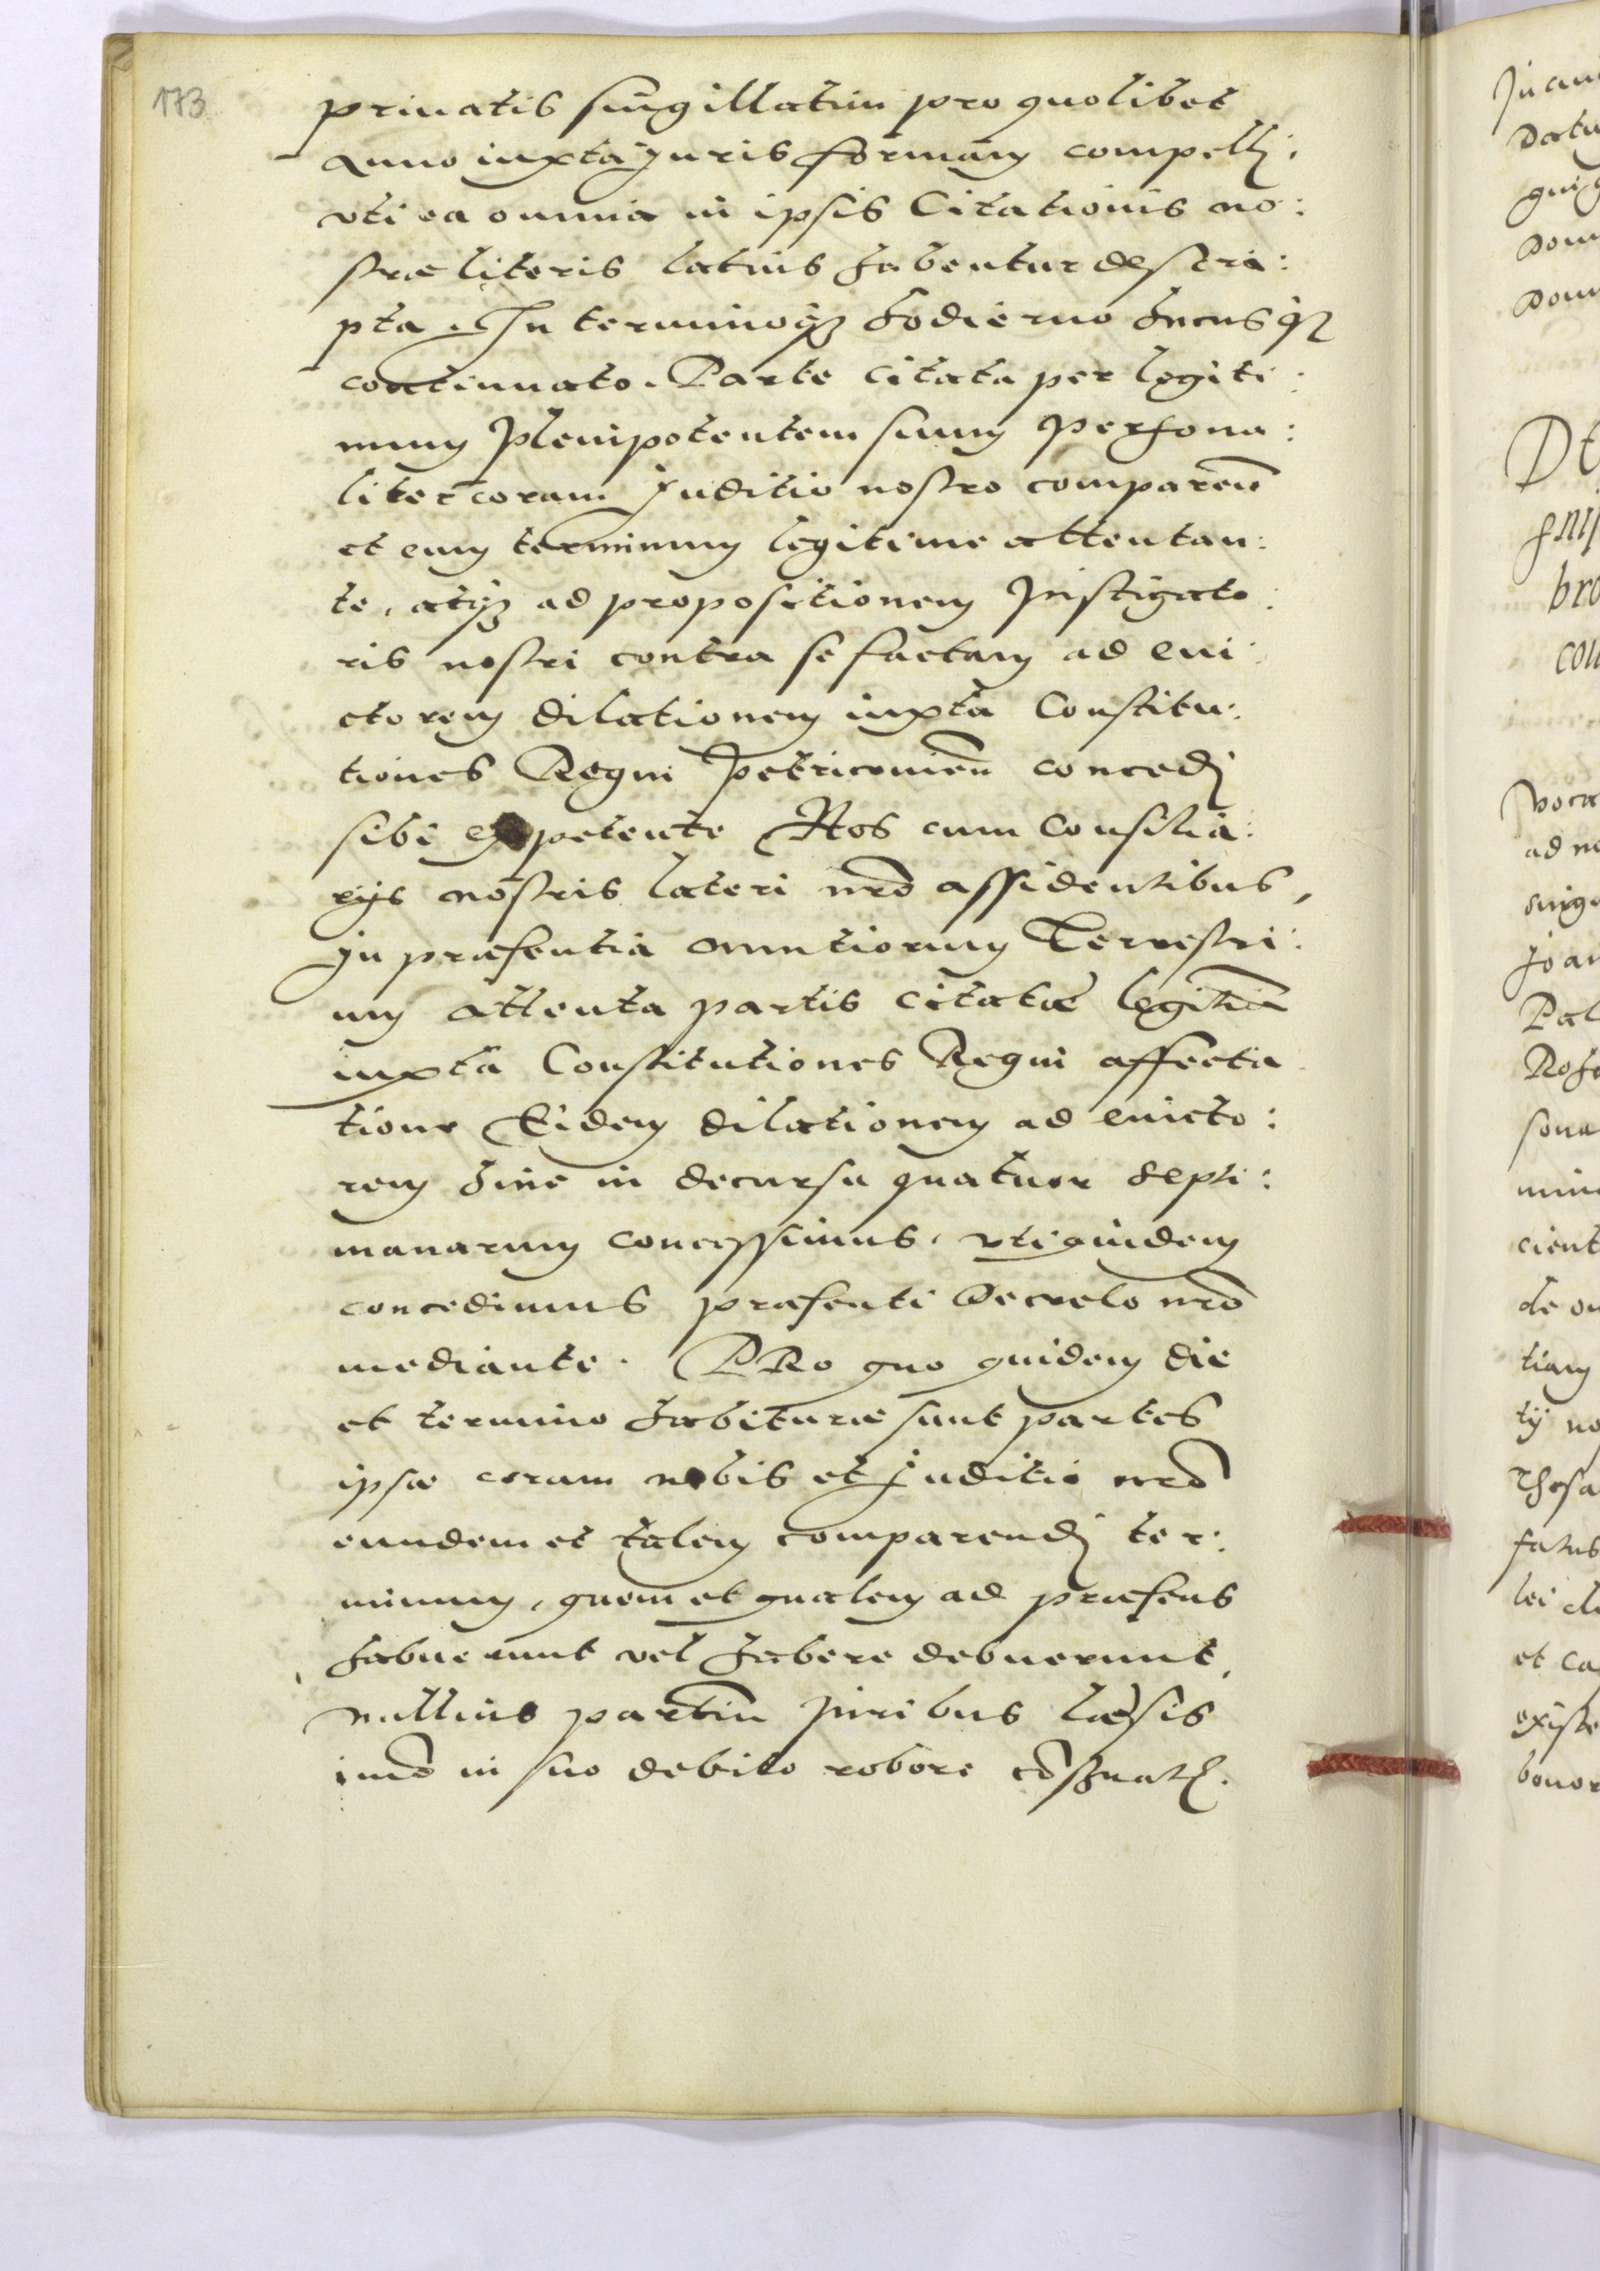 173
priuatis singillatim pro quolibet
anno iuxta Juris formam compelli.
vti ea omnia in ipsis Citationis no:
stræ literis latius habentur descri:
pta. In terminoq3 hodierno hucusq3
continuato. Parte Citata per legiti:
mum Plenipotentem suum Persona:
liter coram Juditio nostro comparen̄
et eum terminum legitime attentan:
te, atq3 ad propositionem Instigato:
ris nostri contra se factam ad eui:
ctorem dilationem iuxta Constitu:
tiones Regni Petricouien̄ concedi
sibi expetente Nos cum Consilia:
rijs nostris lateri nr̄o assidentibus,
Jn præsentia Nuntiorum Terrestri:
um attenta partis citatæ legitima
iuxta Constitutiones Regni affecta
tione Eidem dilationem ad euicto:
rem hinc in decursu quatuor septi:
manarum concessimus, vti quidem
concedimus præsenti Decreto nr̄o
mediante. PRo quo quidem die
et termino habituræ sunt partes
ipsæ coram nobis et Juditio nr̄o
eundem et talem comparendi ter:
minum, quem et qualem ad præsens
habuerunt vel habere debuerunt,
nullius partium Juribus læsis
imo in suo debito robore cōseruatis.